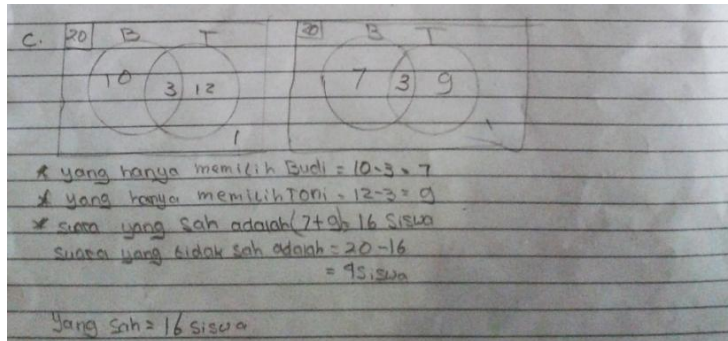 C. 20 B T 20 B T
10 3 12 7 3 9
1 1
* yang hanya memilih Budi = 10-3 = 7
* yang hanya memilih Toni = 12-3 = 9
* suara yang sah adalah (7+9) = 16 siswa
suara yang tidak sah adalah = 20-16
= 4 siswa
Yang sah = 16 siswa